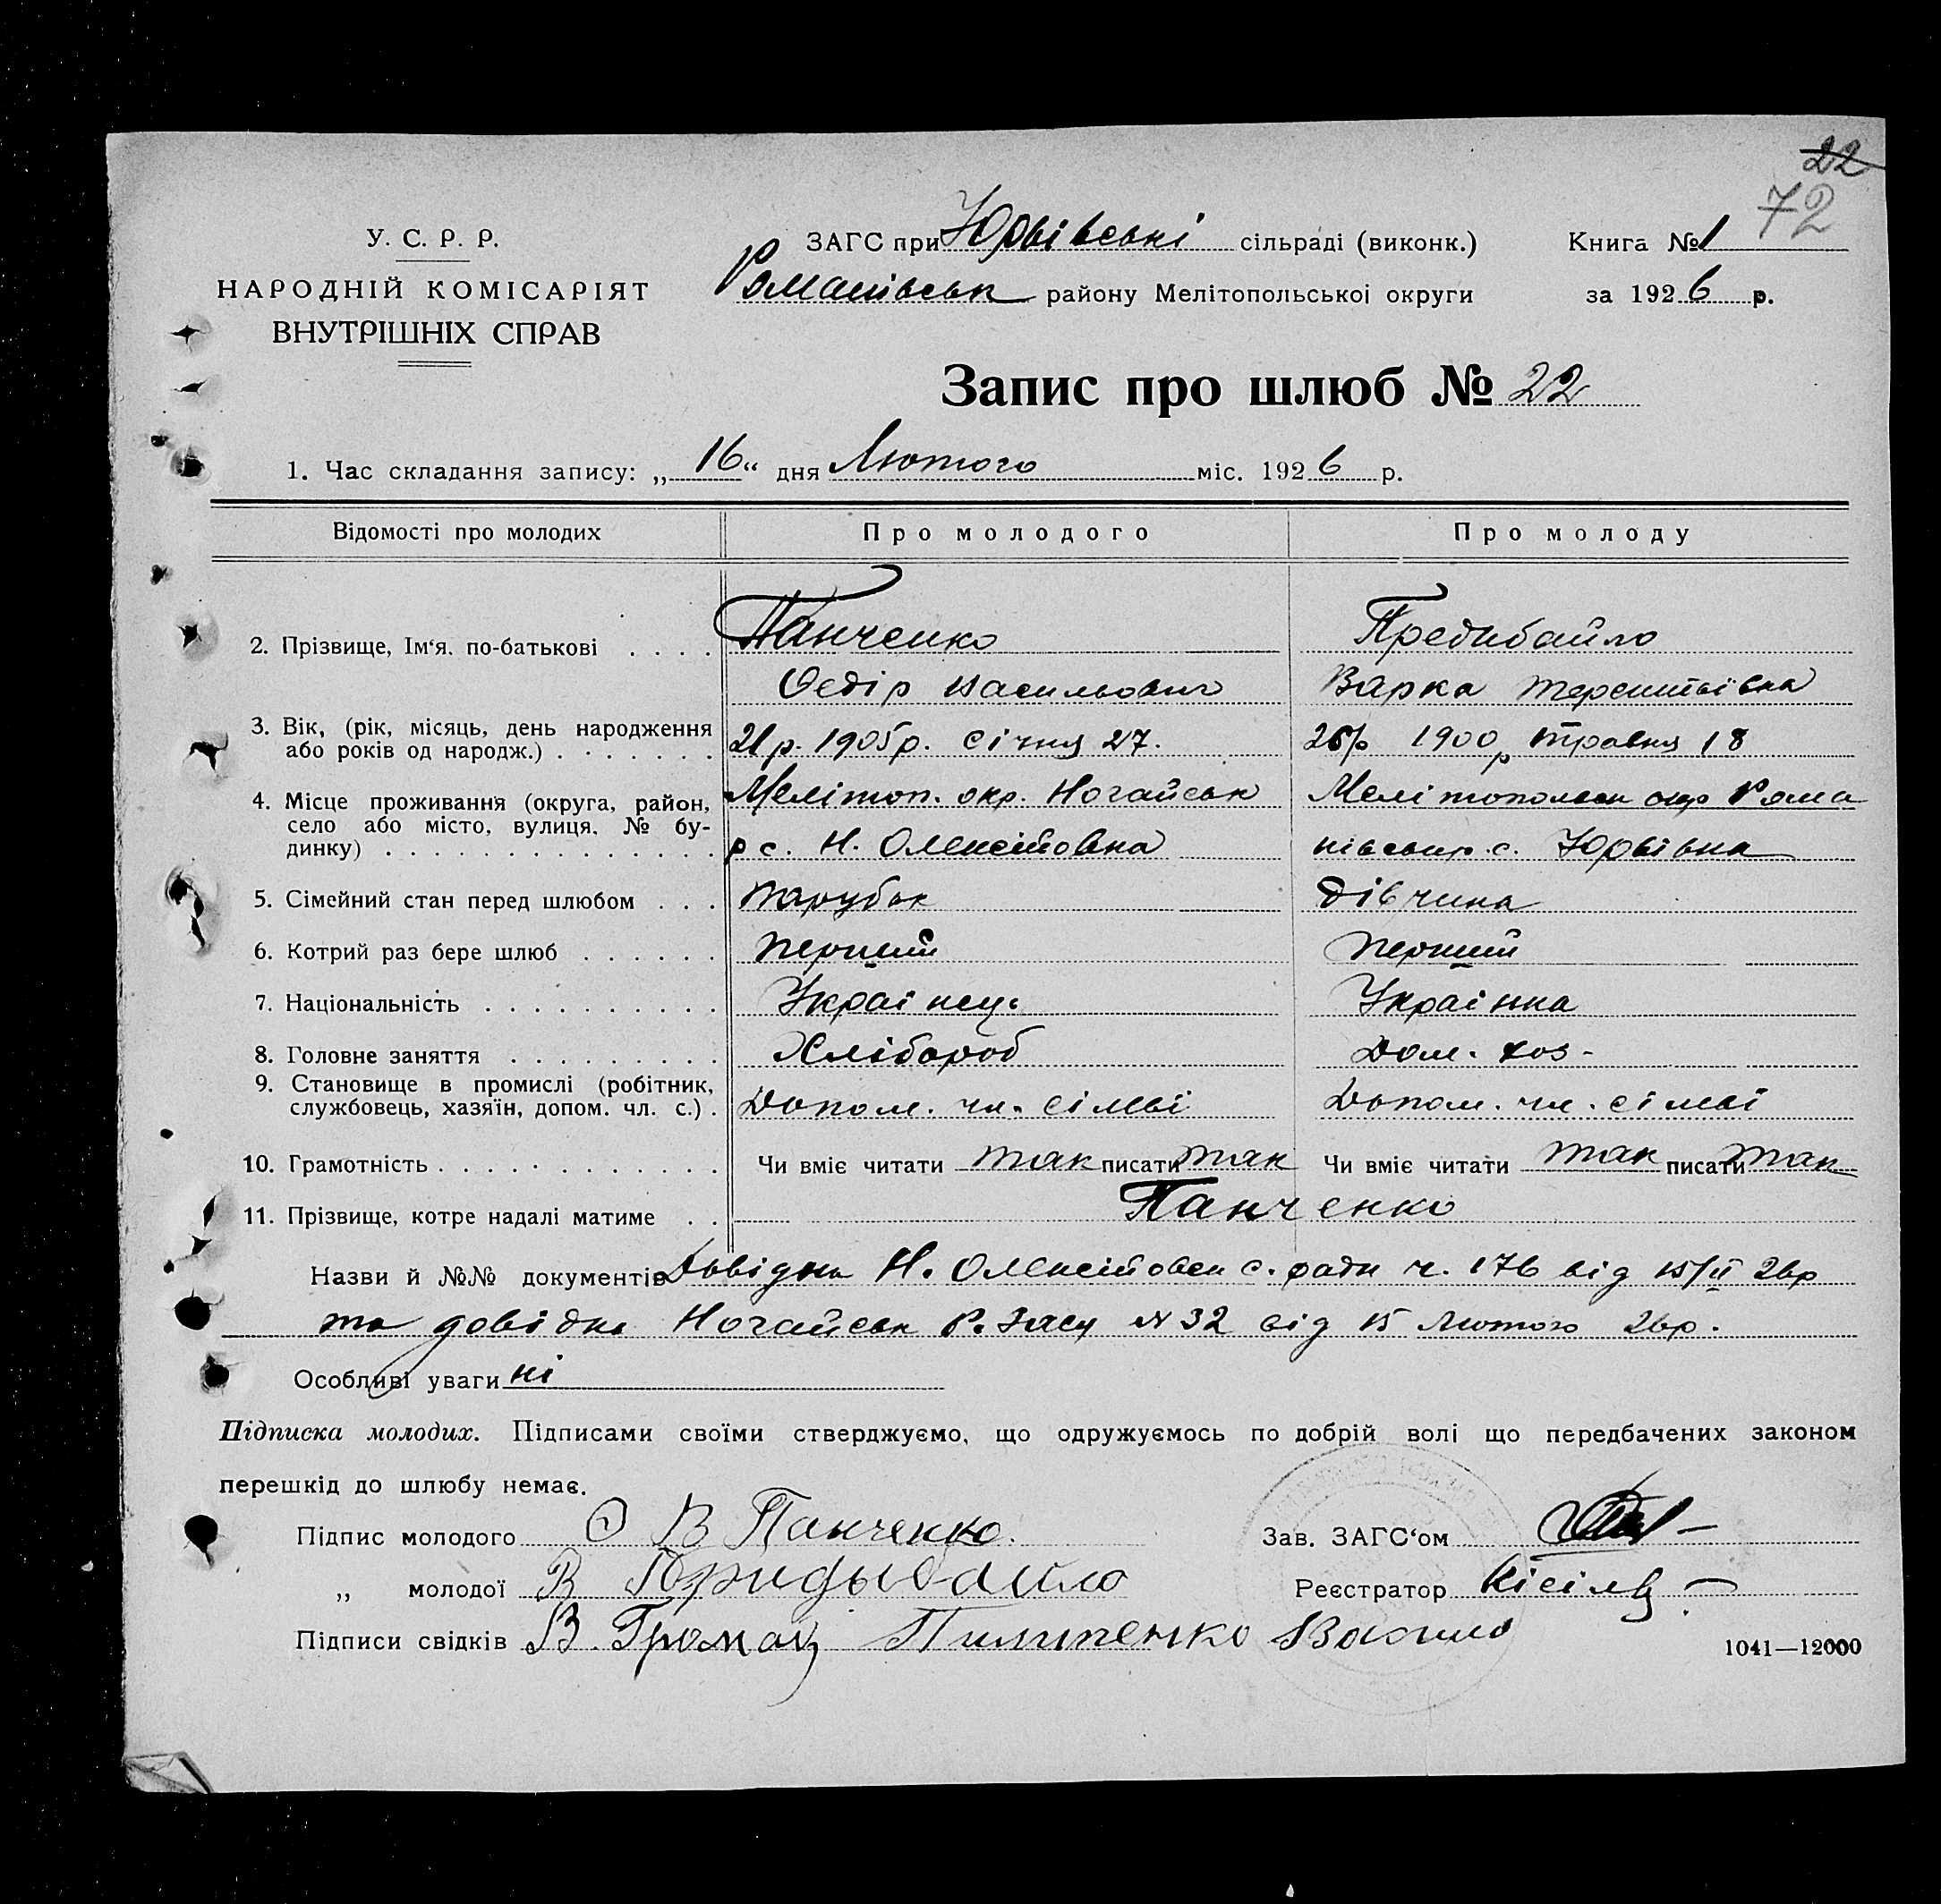 22
72
У. С. Р. Р.
НАРОДНІЙ КОМІСАРІЯТ
ВНУТРІШНІХ СПРАВ
ЗАГС при Юрьівські сільраді (виконк.) Книга № 1
Романівськ району Мелітопольської округи за 1926 р.
Запис про шлюб № 22
1. Час складання запису: „16" дня Лютого міс. 1926 р.
Відомості про молодих Про молодого Про молоду
2. Прізвище, Ім'я. по-батькові Панченко Предибайло
Федір Васильович Варка
3. Вік, (рік, місяць, день народження або років од народж.) 21 р. 1905 р. Січня 27. 1900 р Травня 18
4. Місце проживання (округа, район, село або місто, вулиця, № будинку) Мелітоп. окр. Ногайськ Мелітопольськ окр Рома
р с. Н. Олексійовка нівськ р. с. Юрьівка
5. Сімейний стан перед шлюбом Парубок Дівчина
6. Котрий раз бере шлюб перший перший
7. Національність Украінец. Украінка
8. Головне заняття Хлібороб Дом. хоз-
9. Становище в промислі (робітник, службовець, хазяїн, допом. чл. с.) Допом. чл. сімьі Допом. чл. сімьі
10. Грамотність Чи вміє читати так писати так Чи вміє читати так писати так
11. Прізвище, котре надалі матиме Панченко
Назви й №№ документів Довідка Н. Олексійовськ с. ради ч. 176 від 15/II 26р
та довідка Ногайськ Р. Загсу N 32 від 15 Лютого 26р.
Особливі уваги ні
Підписка молодих. Підписами своїми стверджуємо, що одружуємось по добрій волі що передбачених законом
перешкід до шлюбу немає.
Підпис молодого Ф В Панченко. Зав. ЗАГС'ом
„ молодої В Придыбайло Реєстратор
Підписи свідків В. Пилипенко Василь
1041—12000